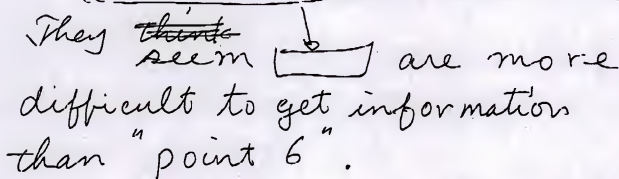 They think
seem are more
difficult to get information
than "point 6".